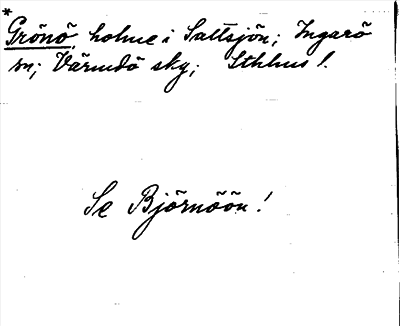 *
Grönö, holme i Saltsjön; Ingarö
sn; Värmdö sky; Sthlms l.
Se Björnöön!